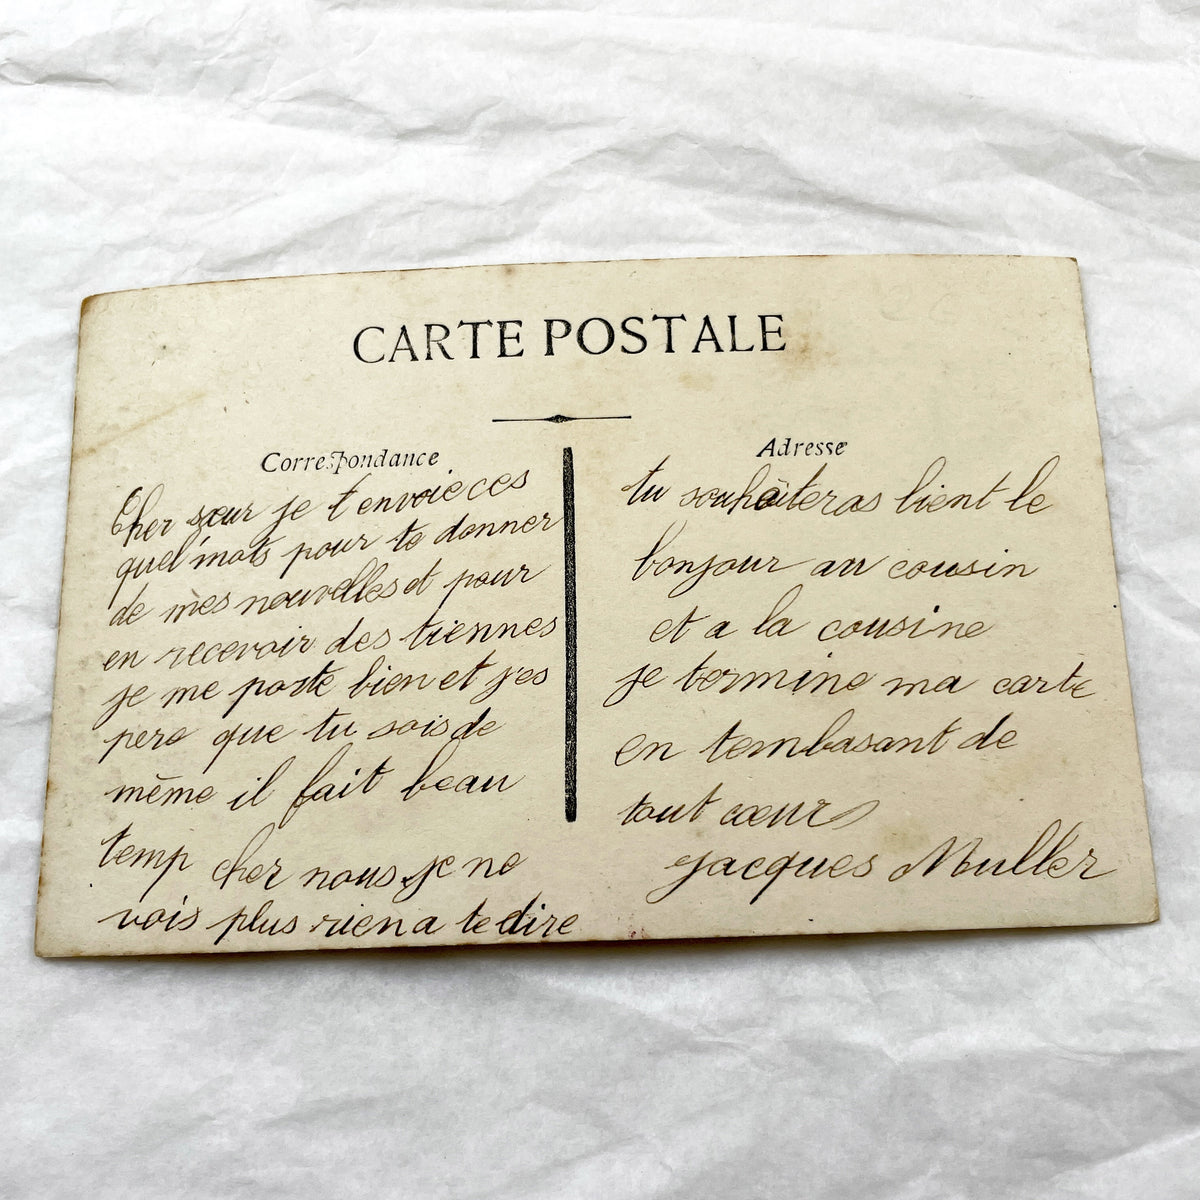 CARTE POSTALE
Correspondance
Cher sœur je t envoie ces
quel'mots pour te donner
de mes nouvelles et pour
en recevoir des tiennes
je me porte bien et j'es
pere que tu sois de
même il fait beau
temp cher nous je ne
vois plus rien a te dire
Adresse
tu souhaiteras bient le
bonjour au cousin
et a la cousine
je termine ma carte
en tembasant de
tout cœur
Jacques Muller